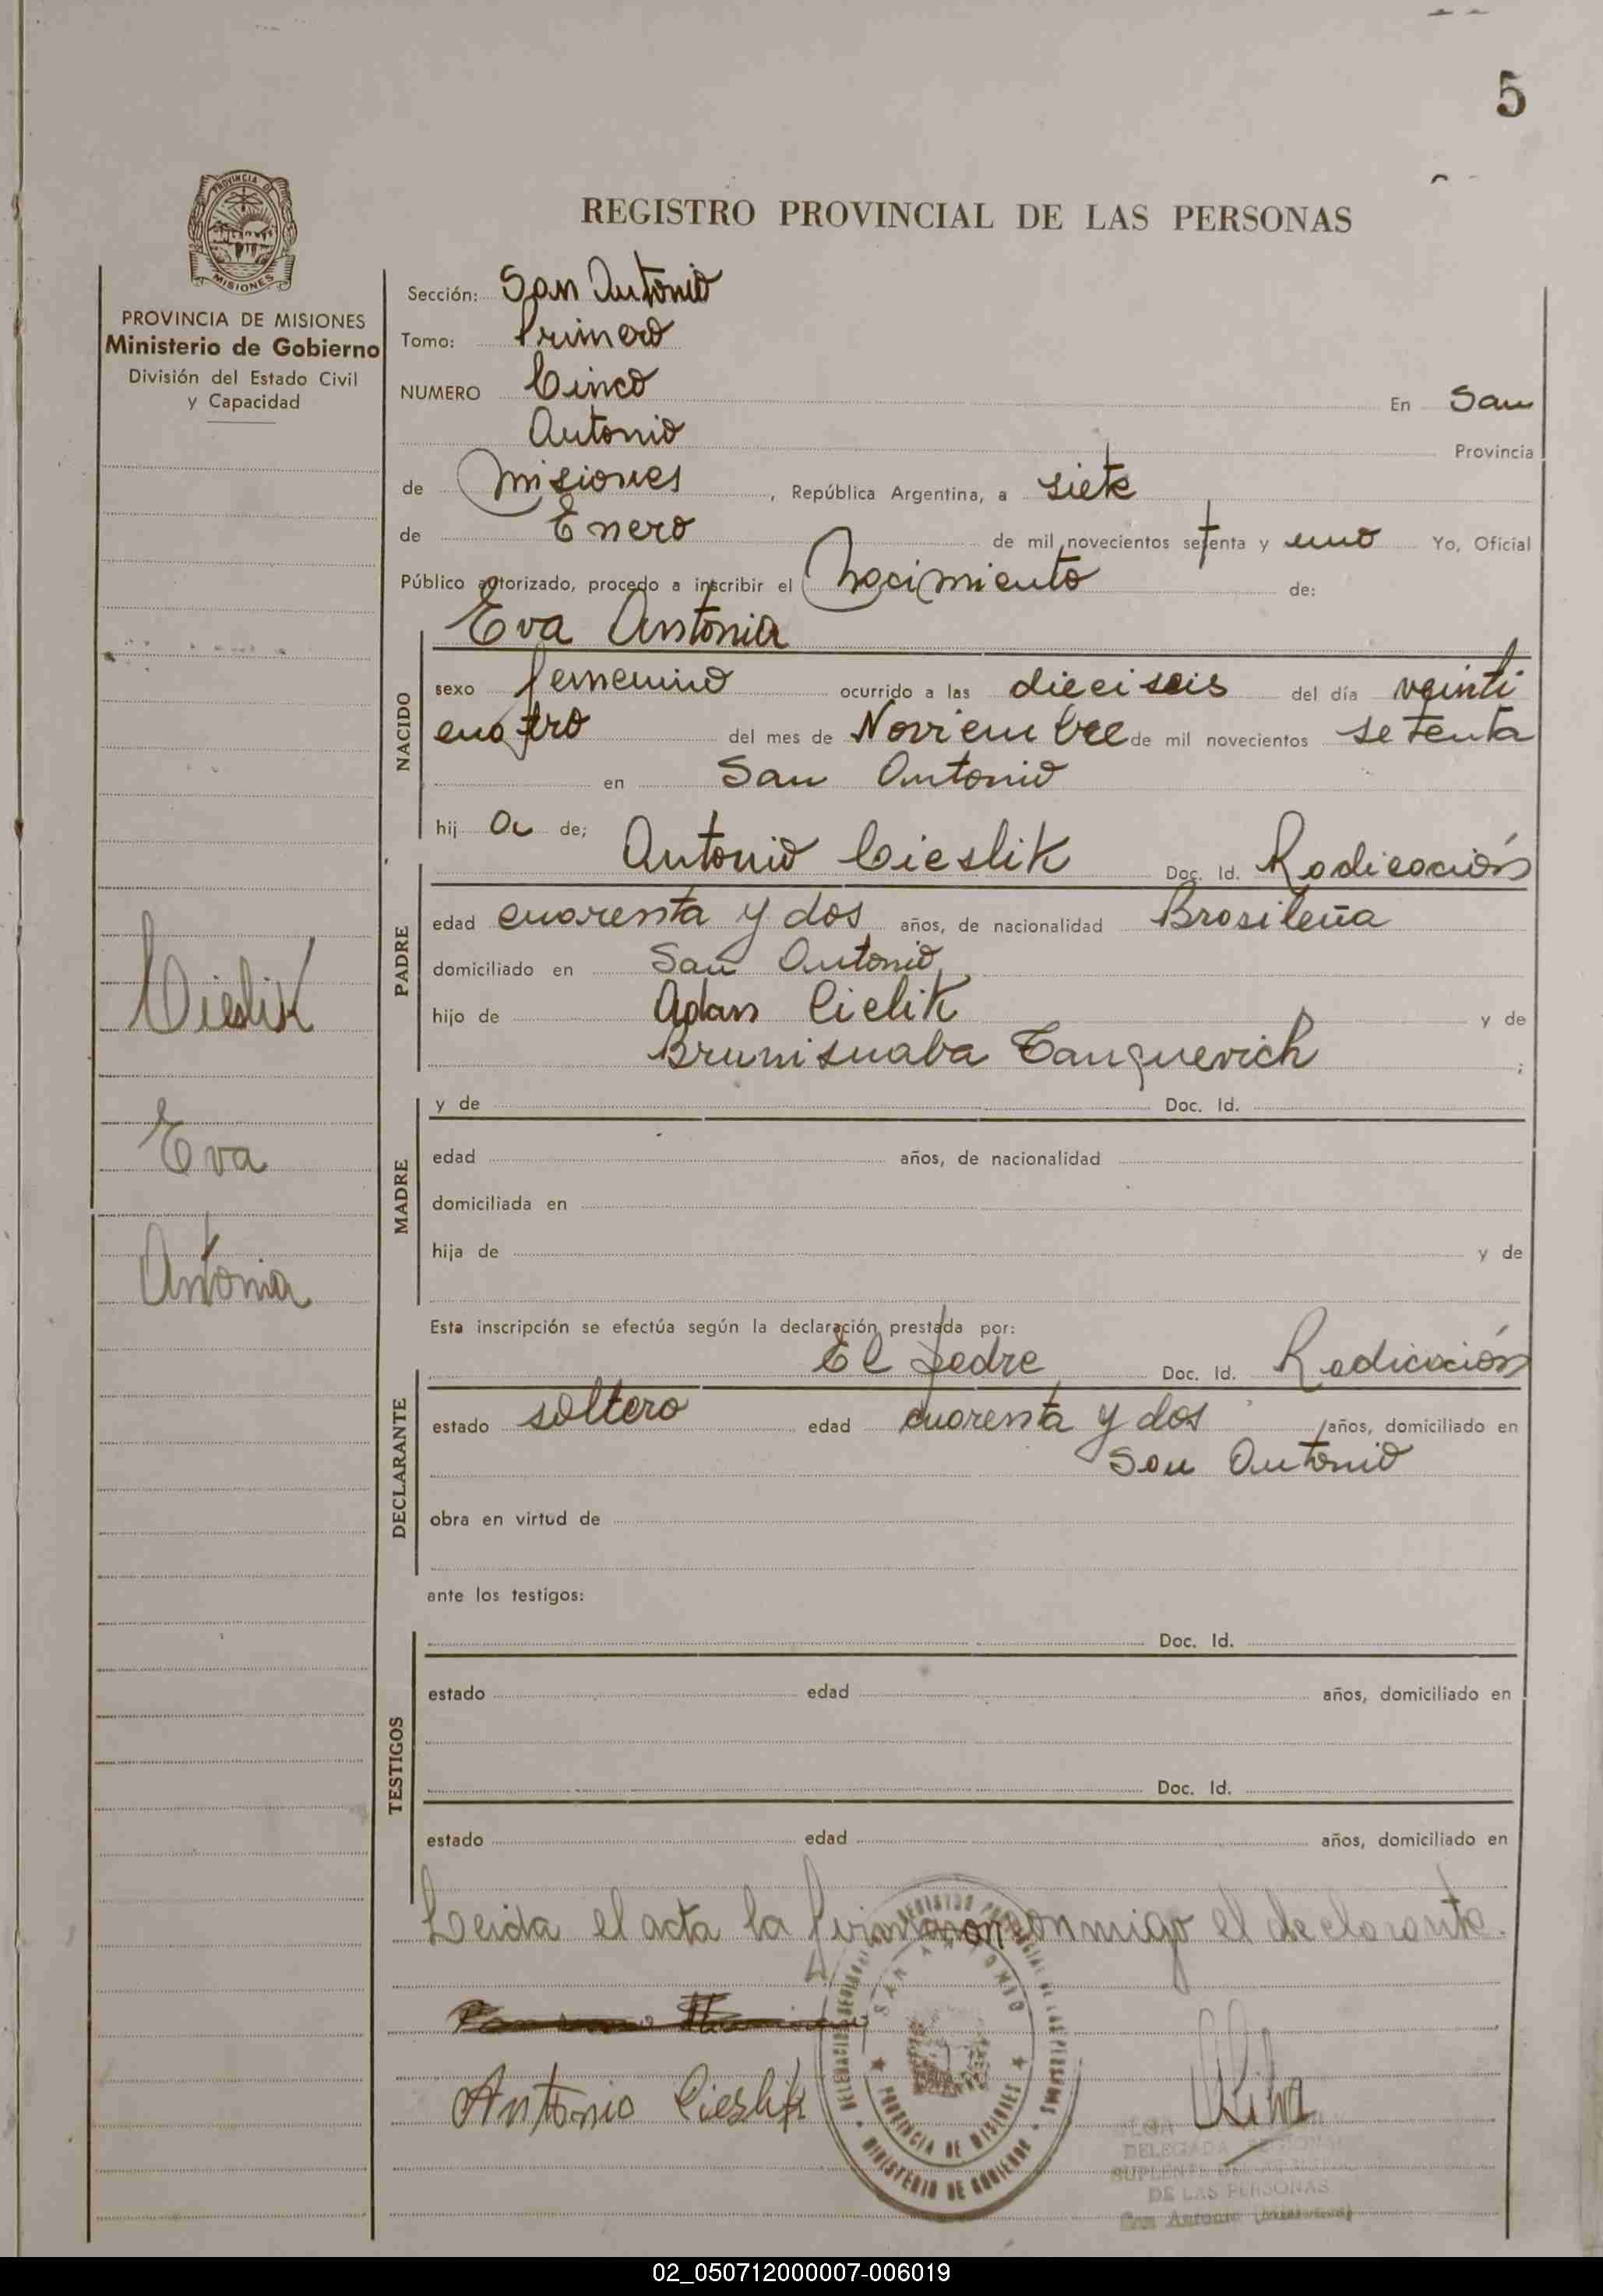 5
PROVINCIA DE
MISIONES
REGISTRO PROVINCIAL DE LAS PERSONAS
PROVINCIA DE MISIONES
Ministerio de Gobierno
División del Estado Civil
y Capacidad
Cieslik
Eva
Antonia
Sección: San Antonio
Tomo: Primero
NUMERO Cinco En San
Antonio Provincia
de Misiones, República Argentina, a siete
de Enero de mil novecientos setenta y uno Yo, Oficial
Público autorizado, procedo a inscribir el Nacimiento de:
Eva Antonia
NACIDO
sexo femenino ocurrido a las dieciseis del día veinti
cuatro del mes de Noviembre de mil novecientos setenta
en San Antonio
hij a de; Antonio Cieslik Doc. Id. Radicación
PADRE
edad cuarenta y dos años, de nacionalidad Brasileña
domiciliado en San Antonio
hijo de Adan Cielik y de
Brunisuaba Tanquevich ;
MADRE
y de Doc. Id.
edad años, de nacionalidad
domiciliada en
hija de y de
Esta inscripción se efectúa según la declaración prestada por:
El padre Doc. Id. Radicación
DECLARANTE
estado soltero edad cuarenta y dos años, domiciliado en
San Antonio
obra en virtud de
ante los testigos:
TESTIGOS
Doc. Id.
estado edad años, domiciliado en
Doc. Id.
estado edad años, domiciliado en
Leida el acta la firmaron conmigo el declarante.
Antonio Cieslik
REGISTRO PROVINCIAL DE LAS PERSONAS
SAN ANTONIO
PROVINCIA DE MISIONES
MINISTERIO DE GOBIERNO
DELEGADA REGIONAL
SUPLENTE
DE LAS PERSONAS
San Antonio (Misiones)
02_050712000007-006019